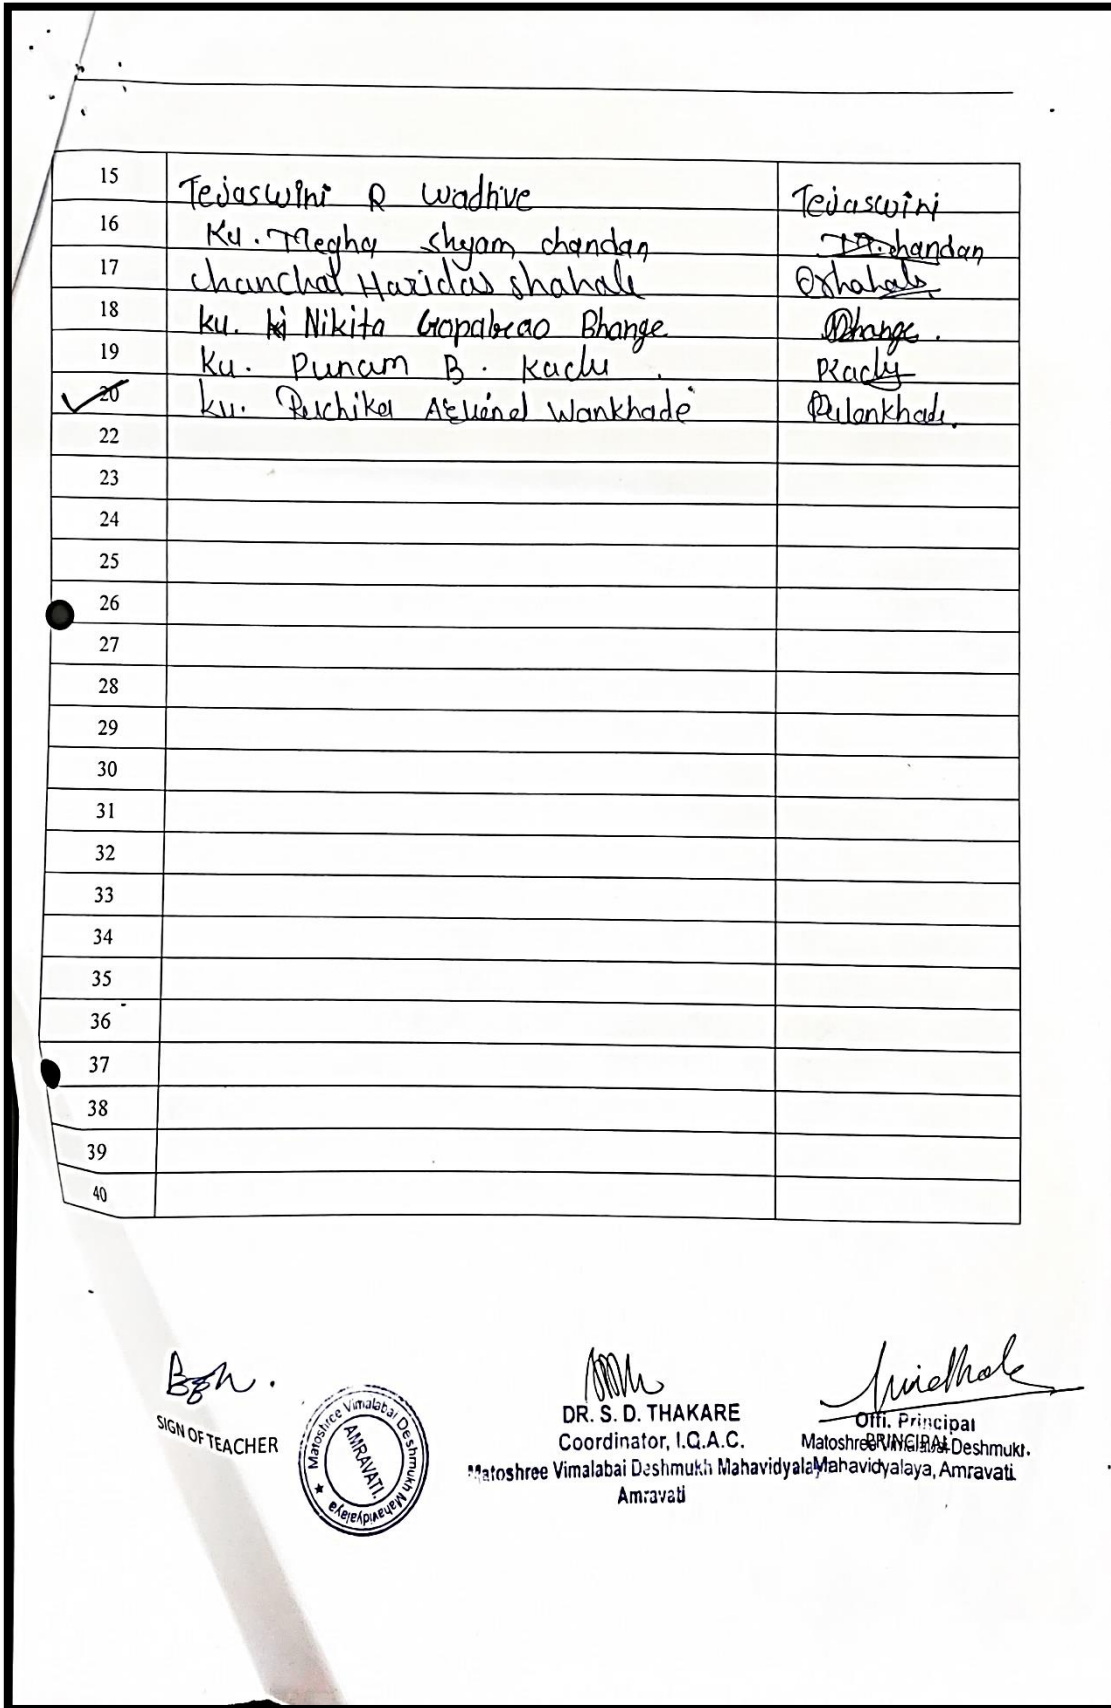 15 Tejaswini R Wadhive Tejaswini
16 Ku. Megha Shyam chandan M.chandan
17 chanchal Haridas shahale shahale
18 ku. Nikita Gopalrao Bhange Bhange.
19 Ku. Punam B. Kadu. PKadu
20 ku. Ruchika Wankhade RWankhade.
22
23
24
25
26
27
28
29
30
31
32
33
34
35
36
37
38
39
40
SIGN OF TEACHER
Matoshree Vimalabai Deshmukh Mahavidyalaya
AMRAVATI.
DR. S. D. THAKARE
Coordinator, I.Q.A.C.
Matoshree Vimalabai Deshmukh Mahavidyalay
Amravati
Offi. Principal
PRINCIPAL
Matoshree Vimalabai Deshmukh
Mahavidyalaya, Amravati